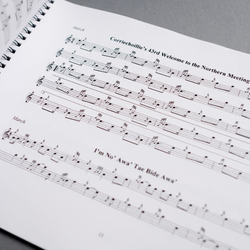 March
Corriechoillie's 43rd Welcome to the Northern Meeting
I'm No' Awa' Tae Bide Awa'
March